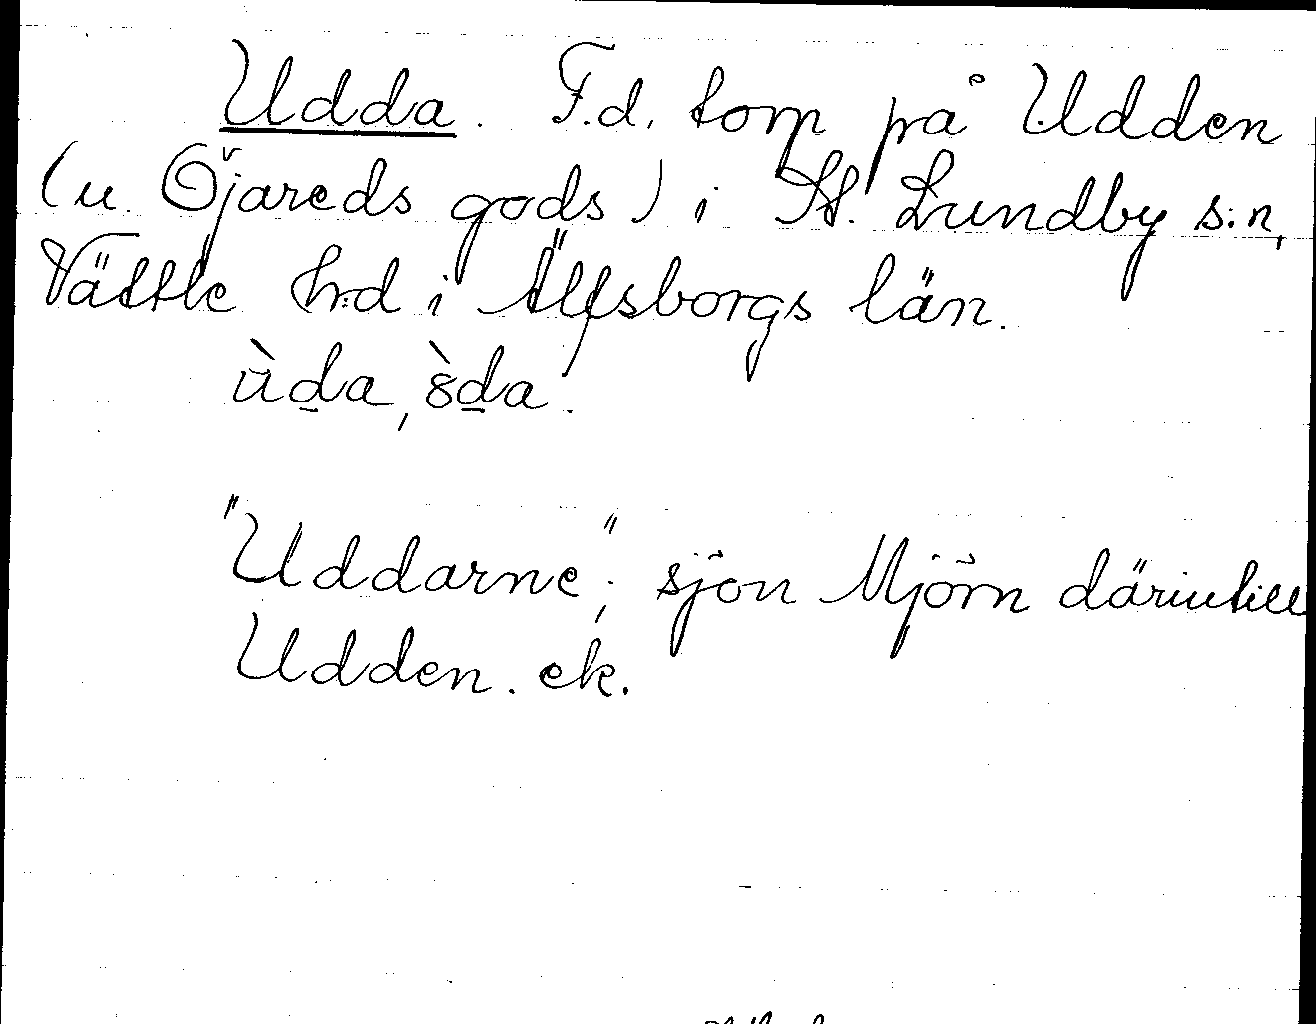 Udda. F.d. torp på Udden
(u. Öjareds gods) i St. Lundby s:n,
Vättle h:d i Älfsborgs län.
ùda, òda.
"Uddarne", sjön Mjörn därintill
Udden. ek.